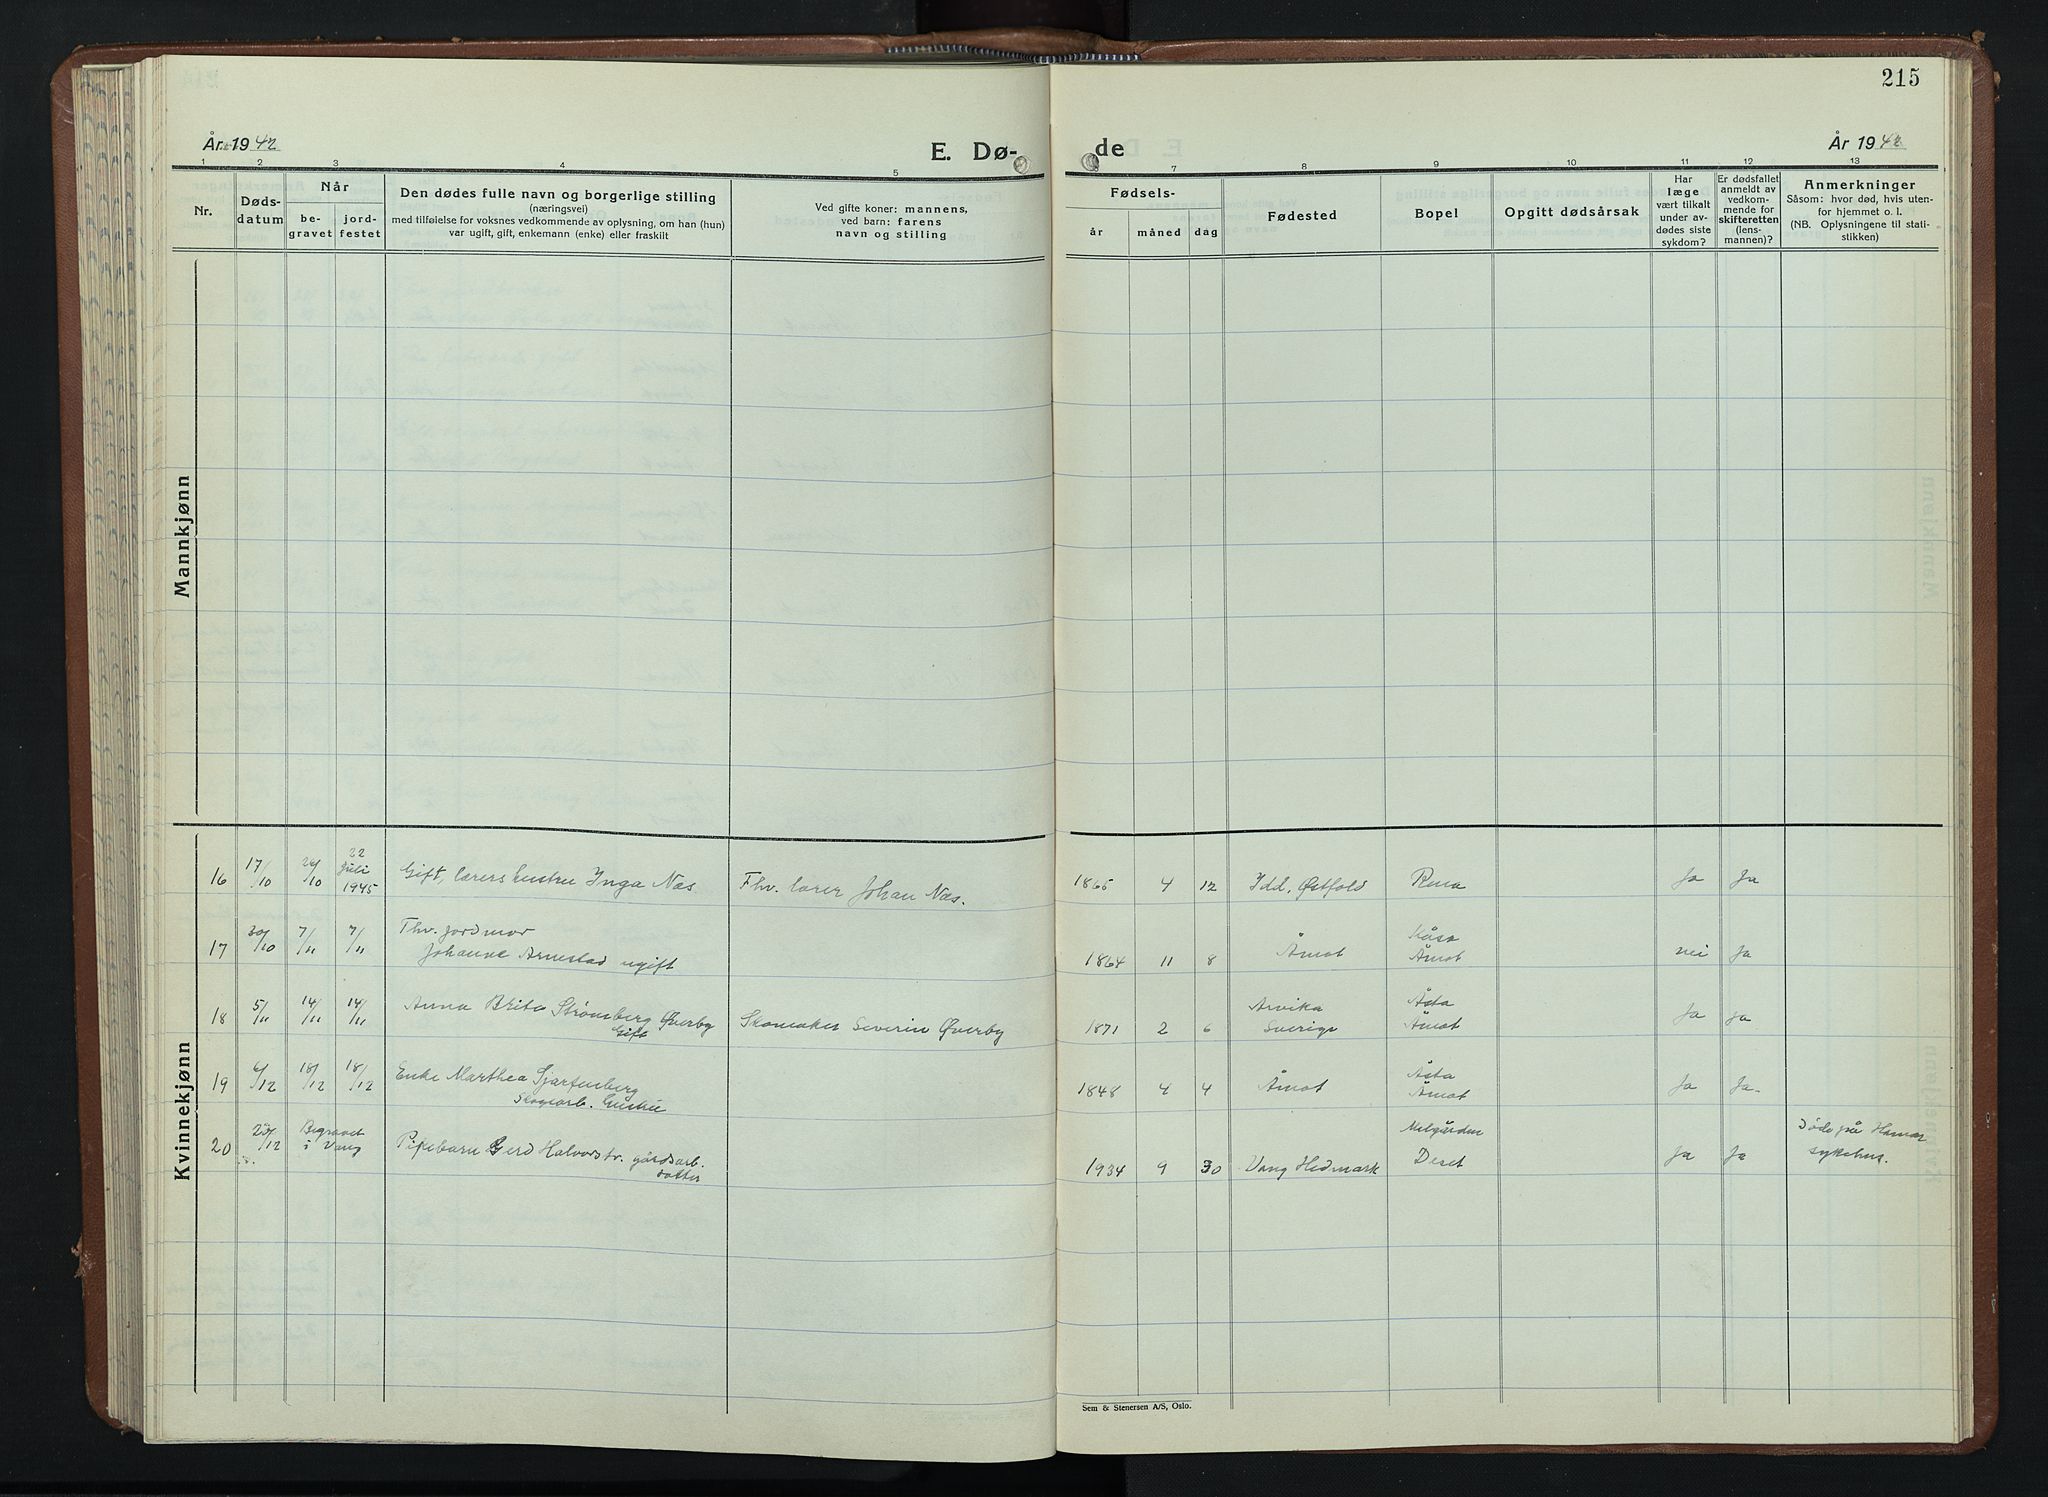 215
År 1942
E. Dø-
de
År 1942
1 2 3 4 5
7 8 9 10 11 12 13
Nr.
Døds-
datum
Når
be-
gravet
jord-
festet
Den dødes fulle navn og borgerlige stilling
(næringsvei)
med tilføielse for voksnes vedkommende av oplysning, om han (hun)
var ugift, gift, enkemann (enke) eller fraskilt
Ved gifte koner: mannens,
ved barn: farens
navn og stilling
Fødsels-
år
måned
dag
Fødested
Bopel
Opgitt dødsårsak
Har
læge
vært tilkalt
under av-
dødes siste
sykdom?
Er dødsfallet
anmeldt av
vedkom-
mende for
skifteretten
(lens-
mannen)?
Anmerkninger
Såsom: hvor død, hvis uten-
for hjemmet o. l.
(NB. Oplysningene til stati-
stikken)
Mannkjønn
Kvinnekjønn
16 17/10 24/10 22 Juli 1945 Gift, lærers hustru Inga Næs Fhv. lærer Johan Næs. 1865 4 12 Idd, Østfold Rena Ja Ja
17 30/10 7/11 7/11 Fhv. jordmor
Johanne Arnestad ugift 1864 11 8 Åmot Kåsa Åmot nei Ja
18 5/11 14/11 14/11 Anna Brita Strømsberg Øverby
Gift Skomaker Severin Øverby 1871 2 6 Arvika Sverige Åsta Åmot Ja Ja
19 6/12 18/12 18/12 Enke Marthea
Skogsarb. hustru 1848 4 4 Åmot Åsta Åmot Ja Ja.
20 /12 Begravet i Vang Pikebarn Gerd Halvorstr. gårdsarb.
datter 1934 9 30 Vang Hedmark Melgården Deset Ja Ja Døde på Hamar
sykehus.
Sem & Stenersen A/S, Oslo.